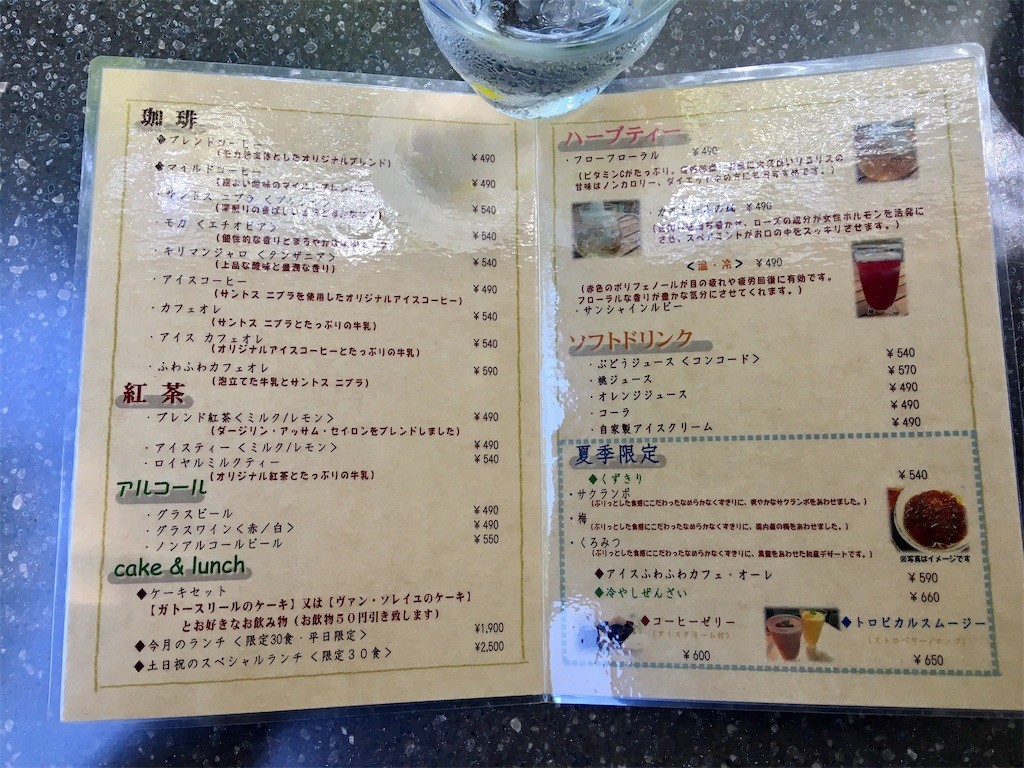 珈琲
◆ブレンドコーヒー
¥490
(モカを主体としたオリジナルブレンド)
◆マイルドコーヒー
¥490
¥540
・モカ＜エチオピア＞
¥540
・キリマンジャロ＜タンザニア＞
¥540
(上品な酸味と豊潤な香り)
・アイスコーヒー
¥490
(サントス ニブラを使用したオリジナルアイスコーヒー)
・カフェオレ
¥540
(サントス ニブラとたっぷりの牛乳)
・アイス カフェオレ
¥540
(オリジナルアイスコーヒーとたっぷりの牛乳)
・ふわふわカフェオレ
¥590
(泡立てた牛乳とサントス ニブラ)
紅茶
・ブレンド紅茶＜ミルク/レモン＞
¥490
(ダージリン・アッサム・セイロンをブレンドしました)
・アイスティー＜ミルク/レモン＞
¥490
・ロイヤルミルクティー
¥540
(オリジナル紅茶とたっぷりの牛乳)
アルコール
・グラスビール
¥490
・グラスワイン＜赤/白＞
¥490
・ノンアルコールビール
¥550
cake & lunch
◆ケーキセット
【ガトースリールのケーキ】又は【ヴァン・ソレイユのケーキ】
とお好きなお飲み物(お飲物50円引き致します)
◆今月のランチ＜限定30食・平日限定＞
¥1,900
◆土日祝のスペシャルランチ＜限定30食＞
¥2,500
ハーブティー
・フローフローラル
¥490
(ビタミンCがたっぷり。
甘味はノンカロリー、ダイエット中の方にもおすすめです。)
¥490
ローズの成分が女性ホルモンを活発に
させ、スペアミントがお口の中をスッキリさせます。)
＜温・冷＞ ¥490
(赤色のポリフェノールが目の疲れや疲労回復に有効です。
フローラルな香りが豊かな気分にさせてくれます。)
・サンシャインルビー
ソフトドリンク
・ぶどうジュース＜コンコード＞
¥540
・桃ジュース
¥570
・オレンジジュース
¥490
・コーラ
¥490
・自家製アイスクリーム
¥490
夏季限定
◆くずきり
¥540
・サクランボ
(ぷりっとした食感にこだわったなめらかなくずきりに、爽やかなサクランボをあわせました。)
・梅
(ぷりっとした食感にこだわったなめらかなくずきりに、国内産の梅をあわせました。)
・くろみつ
(ぷりっとした食感にこだわったなめらかなくずきりに、黒蜜をあわせた和風デザートです。)
※写真はイメージです
◆アイスふわふわカフェ・オーレ
¥590
◆冷やしぜんざい
¥660
◆コーヒーゼリー
(アイスクリーム付)
¥600
◆トロピカルスムージー
(ストロベリー/マンゴ)
¥650